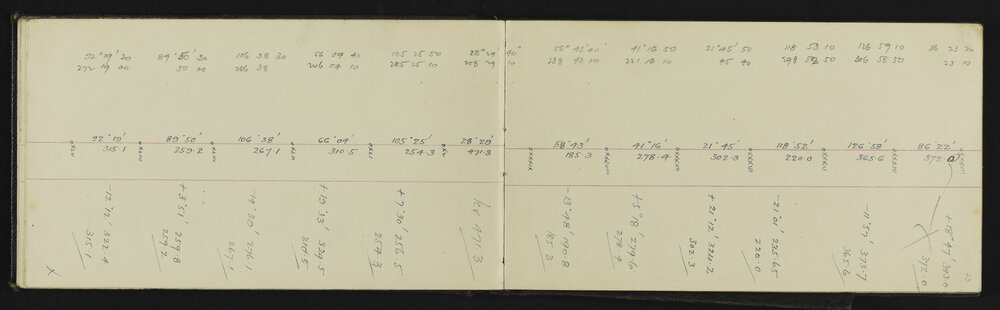 92° 19' 20 89° 50' 30 106 38 30 66 04 40 105 25 50 28° 29 40"
272 19 00 50 00 286 38 246 04 10 285 25 10 208 29 10
92° 19' 89° 50' 106° 38' 66° 04' 105° 25' 28° 29'
315.1 259.2 267.1 310.5 254.3 471.3
-12° 12' 322.4
315.1
+3° 51' 259.8
259.2
-14° 39' 276.1
267.1
+19° 33' 329.5
310.5
+7° 30' 256.5
254.3
lev 471.3
X
58° 43' 40" 41° 16 50 21° 45' 50 118 53 10 126 59 10 86 23 20
238 43 00 221 16 10 45 40 298 52 50 306 58 50 23 10
58° 43' 41° 16 21° 45' 118° 52' 126° 58' 86° 22'
185.3 278.4 302.3 220.0 365.6 372.0
-13° 48' 190.8
185.3
+5° 18' 279.6
278.4
+21° 12' 324.2
302.3
-21° 01' 235.65
220.0
-11° 57' 373.7
365.6
+18° 47' 393.0
372.0